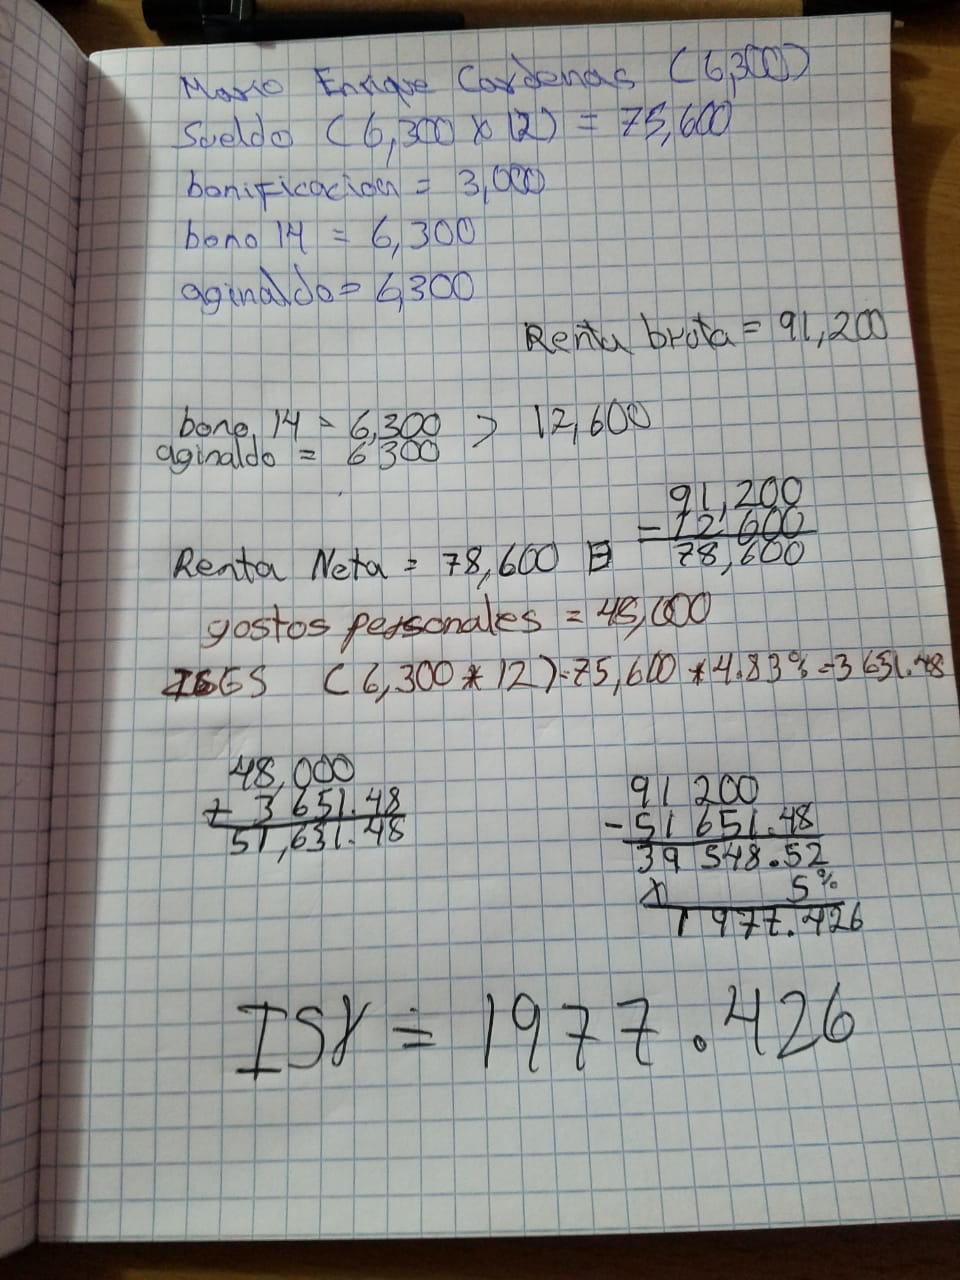 Mario Enrique Cardenas (6,300)
Sueldo (6,300 x 12) = 75,600
bonificacion = 3,000
bono 14 = 6,300
aginaldo = 6,300
Renta bruta = 91,200
bono 14 = 6,300 > 12,600
aginaldo = 6 300
91,200
- 12 600
Renta Neta = 78,600 78,600
gastos personales = 48,000
IGGS (6,300 * 12) = 75,600 * 4.83% = 3 651.48
48,000
+ 3 651.48
51,631.48
91 200
- 51 651.48
39 548.52
x 5%
1 977.426
ISR = 1977.426